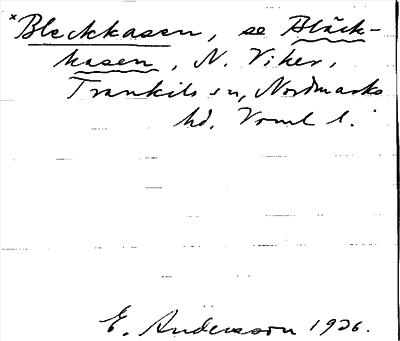 *Bleckkasen, se Bläck-
kasen, N. Viker,
Trankils sn, Nordmarks
hd. Vrml l.
E. Andersson 1926.